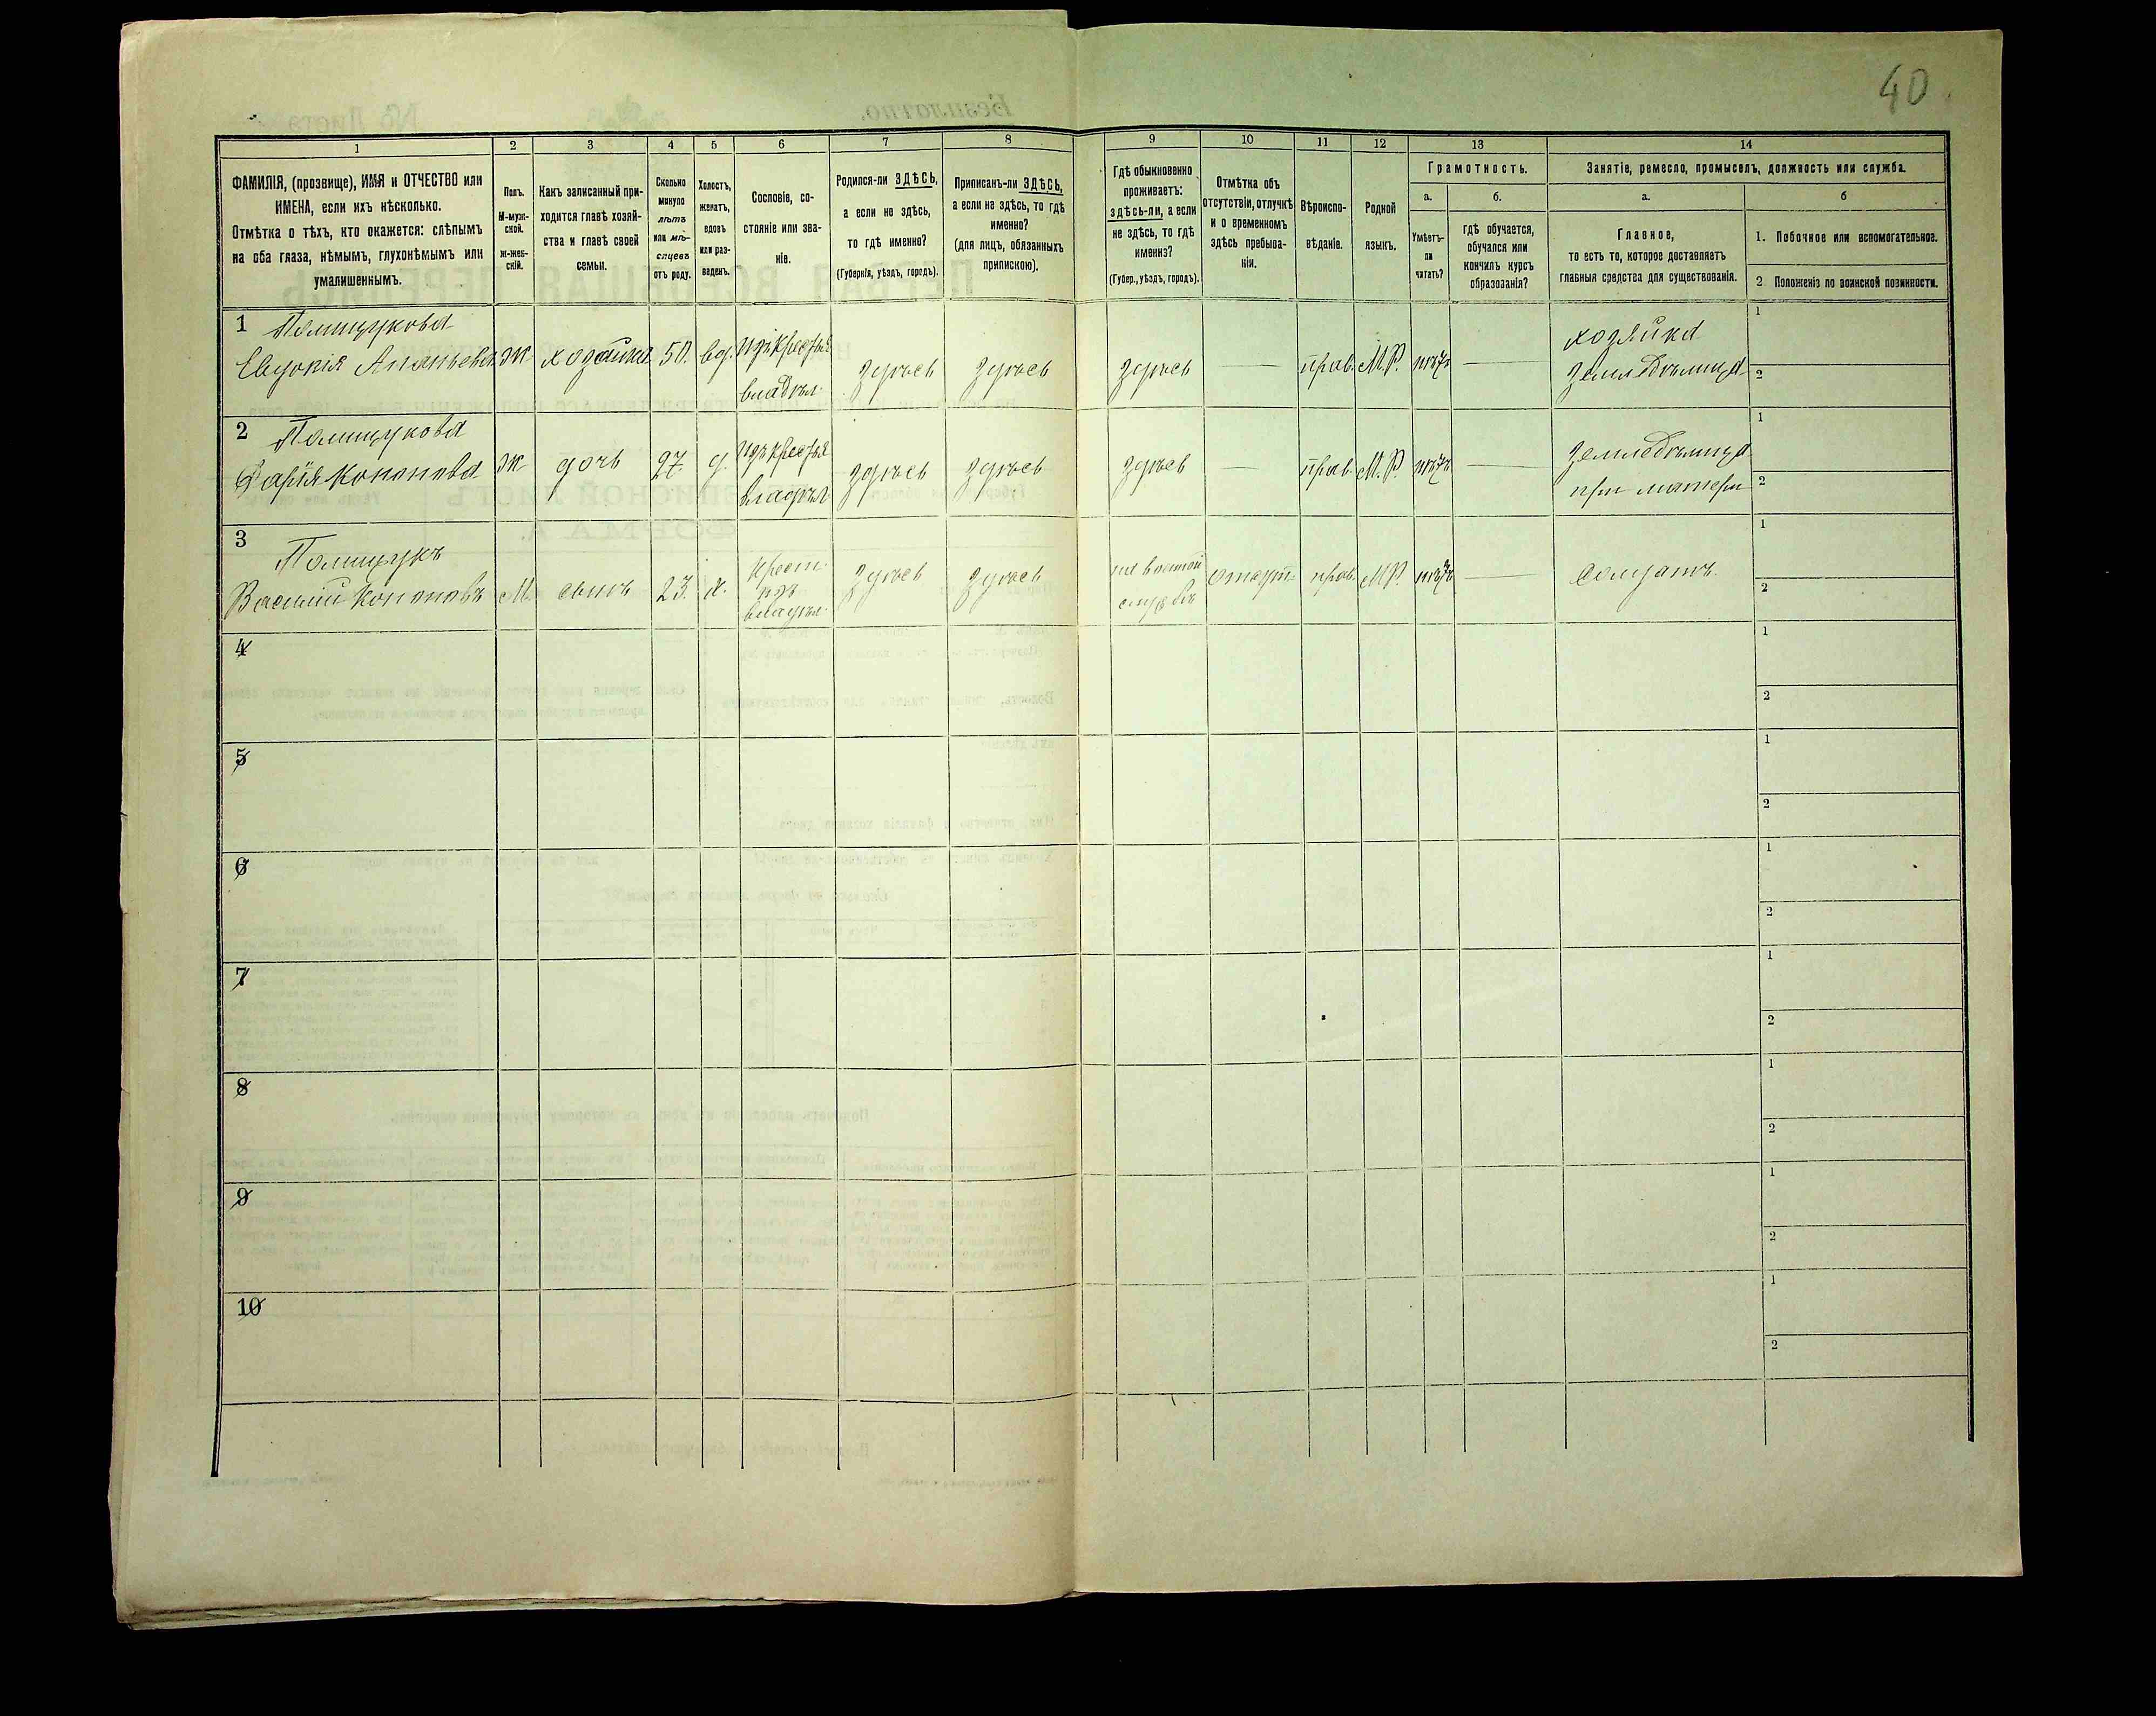 40
1
2
3
4
5
6
7
8
9
10
11
12
13
14
ФАМИЛІЯ, (прозвище), ИМЯ и ОТЧЕСТВО или
ИМЕНА, если ихъ нѣсколько.
Отмѣтка о тѣхъ, кто окажется: слѣпымъ
на оба глаза, нѣмымъ, глухонѣмымъ или
умалишеннымъ.
Полъ.
М-муж-
ской.
Ж-жен-
скій.
Какъ записанный при-
ходится главѣ хозяй-
ства и главѣ своей
семьи.
Сколько
минуло
лѣтъ
или мѣ-
сяцевъ
отъ роду.
Холостъ,
женатъ,
вдовъ
или раз-
веденъ.
Сословіе, со-
стояніе или зва-
ніе.
Родился-ли ЗДѢСЬ,
а если не здѣсь,
то гдѣ именно?
(Губернія, уѣздъ, городъ).
Приписанъ-ли ЗДѢСЬ,
а если не здѣсь, то гдѣ
именно?
(для лицъ, обязанныхъ
припискою).
Гдѣ обыкновенно
проживаетъ:
здѣсь-ли, а если
не здѣсь, то гдѣ
именно?
(Губер., уѣздъ, городъ).
Отмѣтка объ
отсутствіи, отлучкѣ
и о временномъ
здѣсь пребыва-
ніи.
Вѣроиспо-
вѣданіе.
Родной
языкъ.
Грамотность.
а.
Умѣетъ-
ли
читать?
б.
гдѣ обучается,
обучался или
кончилъ курсъ
образованія?
Занятіе, ремесло, промыселъ, должность или служба.
а.
Главное,
то есть то, которое доставляетъ
главныя средства для существованія.
б
1. Побочное или вспомогательное.
2 Положеніе по воинской повинности.
1 Полищукова
Евдокія Ананьева
Ж
хозяйка
50.
вд.
изъ крестья
владѣл.
здѣсь
здѣсь
здѣсь
прав.
М.Р.
нѣтъ
хозяйка
Земледѣлица
1
2
2 Полищукова
Дарія Кононова
Ж
дочь
27.
д.
изъ крестья
владѣл
здѣсь
здѣсь
здѣсь
прав.
М.Р.
нѣтъ
Земледѣлица
при матери
1
2
3 Полищукъ
Василій Кононовъ
М.
сынъ
23.
х.
крест.
изъ
владѣл.
здѣсь
здѣсь
на военной
службѣ
отсут.
прав.
М.Р.
нѣтъ
Солдатъ.
1
2
4
1
2
5
1
2
6
1
2
7
1
2
8
1
2
9
1
2
10
1
2